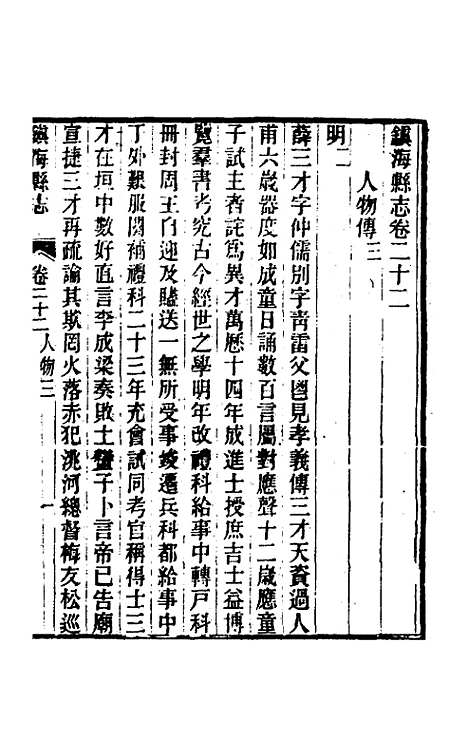 鎮海縣志卷二十二
人物傳三
明二
薛三才字仲儒別字青雷父 見孝義傳三才天資過人
甫六歲器度如成童日誦數百言屬對應聲十二歲應童
子試主者詫爲異才萬歷十四年成進士授庶吉士益博
覽羣書考究古今經世之學明年改禮科給事中轉戸科
冊封周王自迎及贐送一無所受事竣遷兵科都給事中
丁外艱服闋補禮科二十三年充會試同考官稱得士三
才在垣中數好直言李成梁奏敗土蠻子卜言帝已告廟
宣捷三才再疏論其欺罔火落赤犯洮河總督梅友松巡
鎮海縣志
卷二十二人物三
一